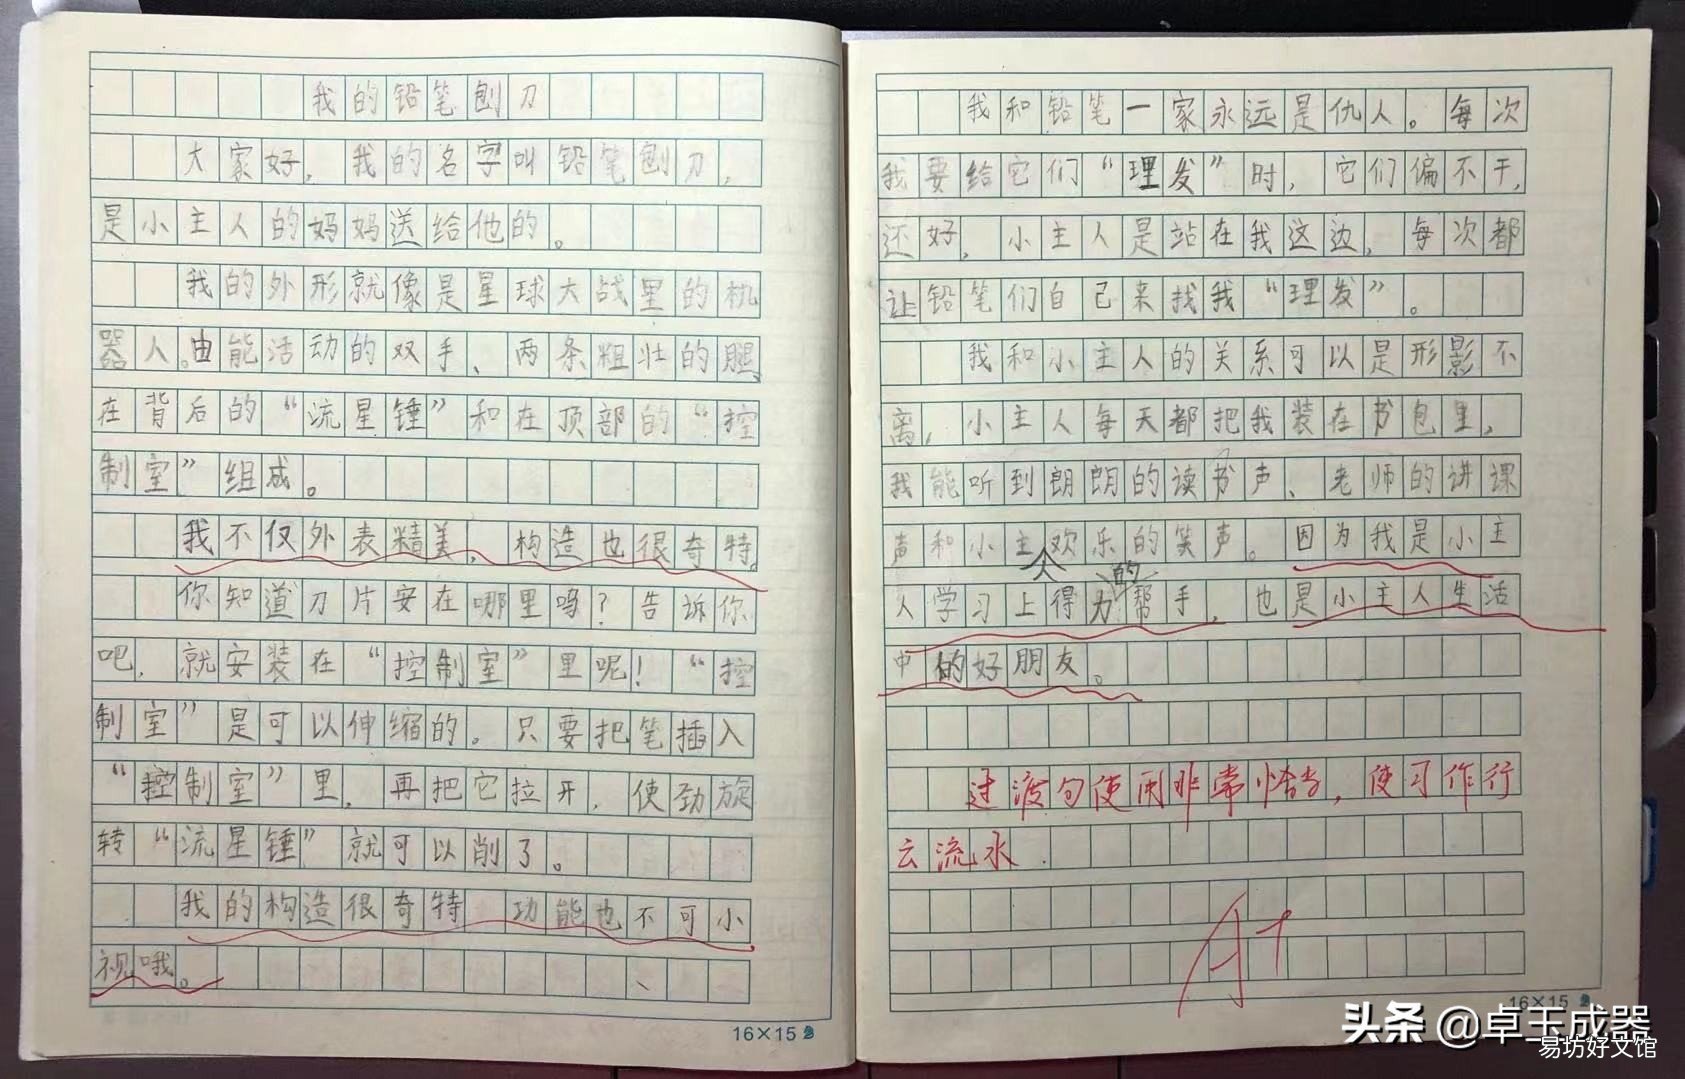 我的铅笔刨刀
大家好，我的名字叫铅笔刨刀，
是小主人的妈妈送给他的。
我的外形就像是星球大战里的机
器人。由能活动的双手、两条粗壮的腿、
在背后的“流星锤”和在顶部的“控
制室”组成。
我不仅外表精美，构造也很奇特。
你知道刀片安在哪里吗？告诉你
吧，就安装在“控制室”里呢！“控
制室”是可以伸缩的。只要把笔插入
“控制室”里，再把它拉开，使劲旋
转“流星锤”就可以削了。
我的构造很奇特 功能也不可小
视哦。
16×15
我和铅笔一家永远是仇人。每次
我要给它们“理发”时，它们偏不干，
还好，小主人是站在我这边，每次都
让铅笔们自己来找我“理发”。
我和小主人的关系可以是形影不
离，小主人每天都把我装在书包里，
我能听到朗朗的读书声、老师的讲课
声和小主人欢乐的笑声。因为我是小主
人学习上得力的帮手，也是小主人生活
中的好朋友。
过渡句使用非常恰当，使习作行
云流水.
A+
16×15
头条 @卓玉成器
易坊好文馆